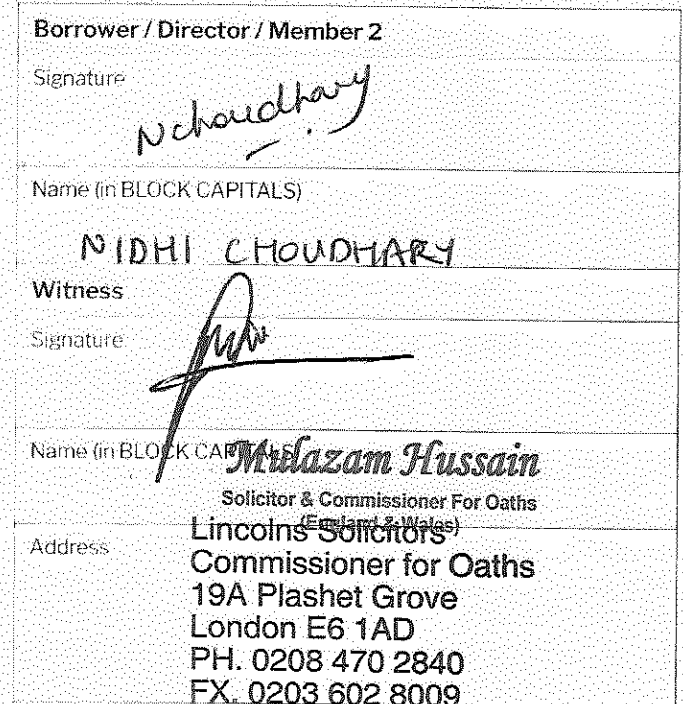 Borrower / Director / Member 2
Signature
Nchoudhary
Name (in BLOCK CAPITALS)
NIDHI CHOUDHARY
Witness
Signature
Name (in BLOCK CAPITALS)
Mulazam Hussain
Solicitor & Commissioner For Oaths
(England & Wales)
Address
Lincolns Solicitors
Commissioner for Oaths
19A Plashet Grove
London E6 1AD
PH. 0208 470 2840
FX. 0203 602 8009